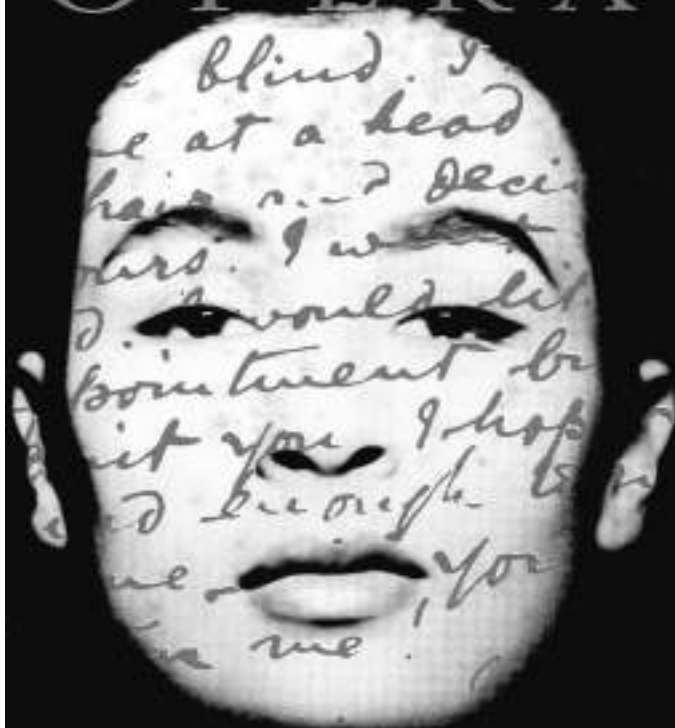 OPERA
blind. I
at a head
hair and deci
ours. I want
d. I would lik
pointment br
it you I hop
d enough
me you
me!